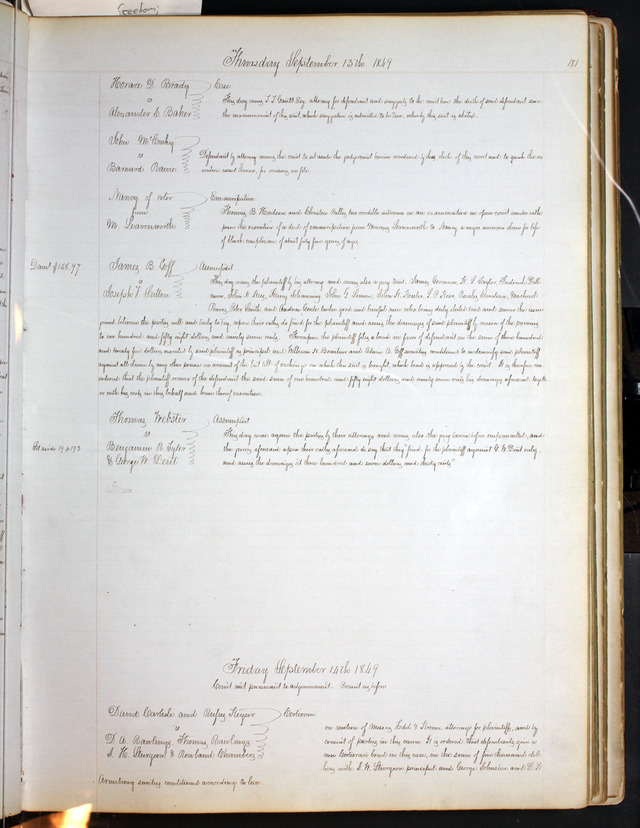 freedom;
Thursday September 13th 1849
181
Horace D. Brady Case
vs This day comes T. T. Gantt Esq. attorney for defendant and suggests to the court here the death of said defendant since
Alexander C. Baker the commencement of this suit, which suggestion is admitted to be true, whereby this suit is abated.
John
vs Defendant by attorney moves the court to set aside the judgment herein rendered by the clerk of this court and to quash the
Barnard issued thereon, for reasons on file.
Nancy of color Emancipation
from Thomas B. Hudson and Christian two credible witnesses on an examination in open court under oath
M. Leavenworth prove the execution of a deed of emancipation from Leavenworth to Nancy a negro woman slave for life
of black complexion of about forty four years of age.
Damt $158.97
James B. Goff Assumpsit
vs This day comes the plaintiff by his attorney and comes also a jury viz James H. S. Taylor, Frederick
Joseph V. John H. Henry John G. John H.
Peter Smith and Andrew twelve good and lawful men who being duly elected tried and sworn the issue
joined between the parties, well and truly to try, upon their oaths do find for the plaintiff and assess the damages of said plaintiff by reason of the premises
to one hundred and fifty eight dollars and ninety seven cents. Thereupon the plaintiff files a bond in favor of defendant in the sum of three hundred
and twenty four dollars executed by said plaintiff as principal and William H. and Edwin A. Goff security conditioned to indemnify said plaintiff
against all claim by any other person on account of the lost bill of exchange on which this suit is brought, which bond is approved by the court. It is therefore con
sidered that the plaintiff recover of the defendant the said sum of one hundred and fifty eight dollars and ninety seven cents his damages aforesaid togeth
er with his costs in this behalf and have thereof execution.
Thomas Webster Assumpsit
vs This day come again the parties by their attorneys and comes also the jury herein before empannelled, and
Set aside 19 p 193
Benjamin R. Tyler the jurors aforesaid upon their oaths aforesaid do say that they "find for the plaintiff against G. W. Dent only,
& George W. Dent and assess the damages at three hundred and seven dollars and thirty cents"
Friday September 14th 1849
Court met pursuant to adjournment. Present as before
David Carlisle and Rufus Keyser Certiorari
vs on motion of Messrs Todd & attorneys for plaintiffs, and by
D. A. Rawlings, Thomas Rawlings consent of parties in this cause It is ordered that defendants give a
J. H. Sturgeon & Rowland Chambers new Certiorari bond in this case, in the sum of four thousand dol
lars with J. H. Sturgeon principal and George Johnston and D. D.
Armstrong security conditioned according to law.